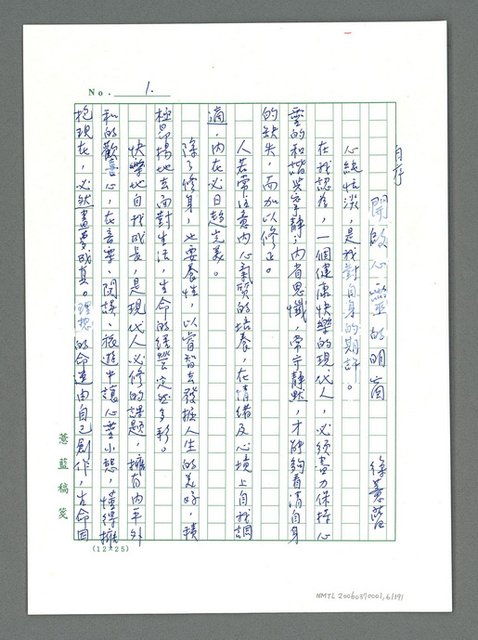 No. 1.
自序
開啟心靈的明窗 徐薏藍
心純恬淡，是我對自身的期許。
在我認為，一個健康快樂的現代人，必須書力保持心
靈的和諧與寧靜；內省思懺，常守靜默，才能夠看清自身
的缺失，而加以修正。
人若常注意內心氣質的培養，在情緒及心境上自我調
適，內在必日趨完美。
除了修身，也要養性，以睿智去發掘人生的美好，積
極昂揚地去面對生活，生命的經營定然多彩。
快樂地自我成長，是現代人必修的課題，擁有內平外
和的歡喜心，在音樂、閱讀、旅遊中讓心靈小憩，懂得擁
抱現在，必然畫夢成真。理想的命運由自己創作，生命因
薏藍稿箋
(12×25)
NMTL 20060370001,6/191